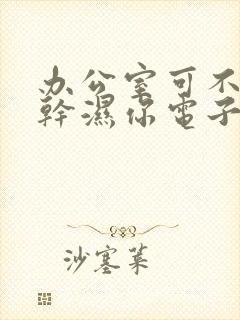 办公室可不
幹濕你電子
沙塞菓